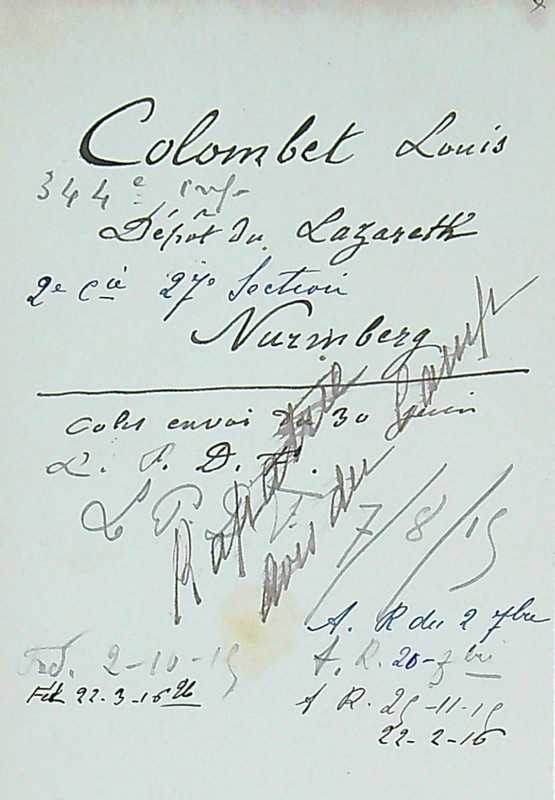 Colombet Louis
344e inf
Dépôt du Lazareth
2e Cie 27e Section
Nurmberg
Colis envoi du 30 Juin
L. P. D. F.
L P
Rapatrié
avis du Camp
7/8/15
A. R du 2 7bre
A. R. 20-7bre
2-10-15
A R. 25-11-15
22-3-16
22-2-16